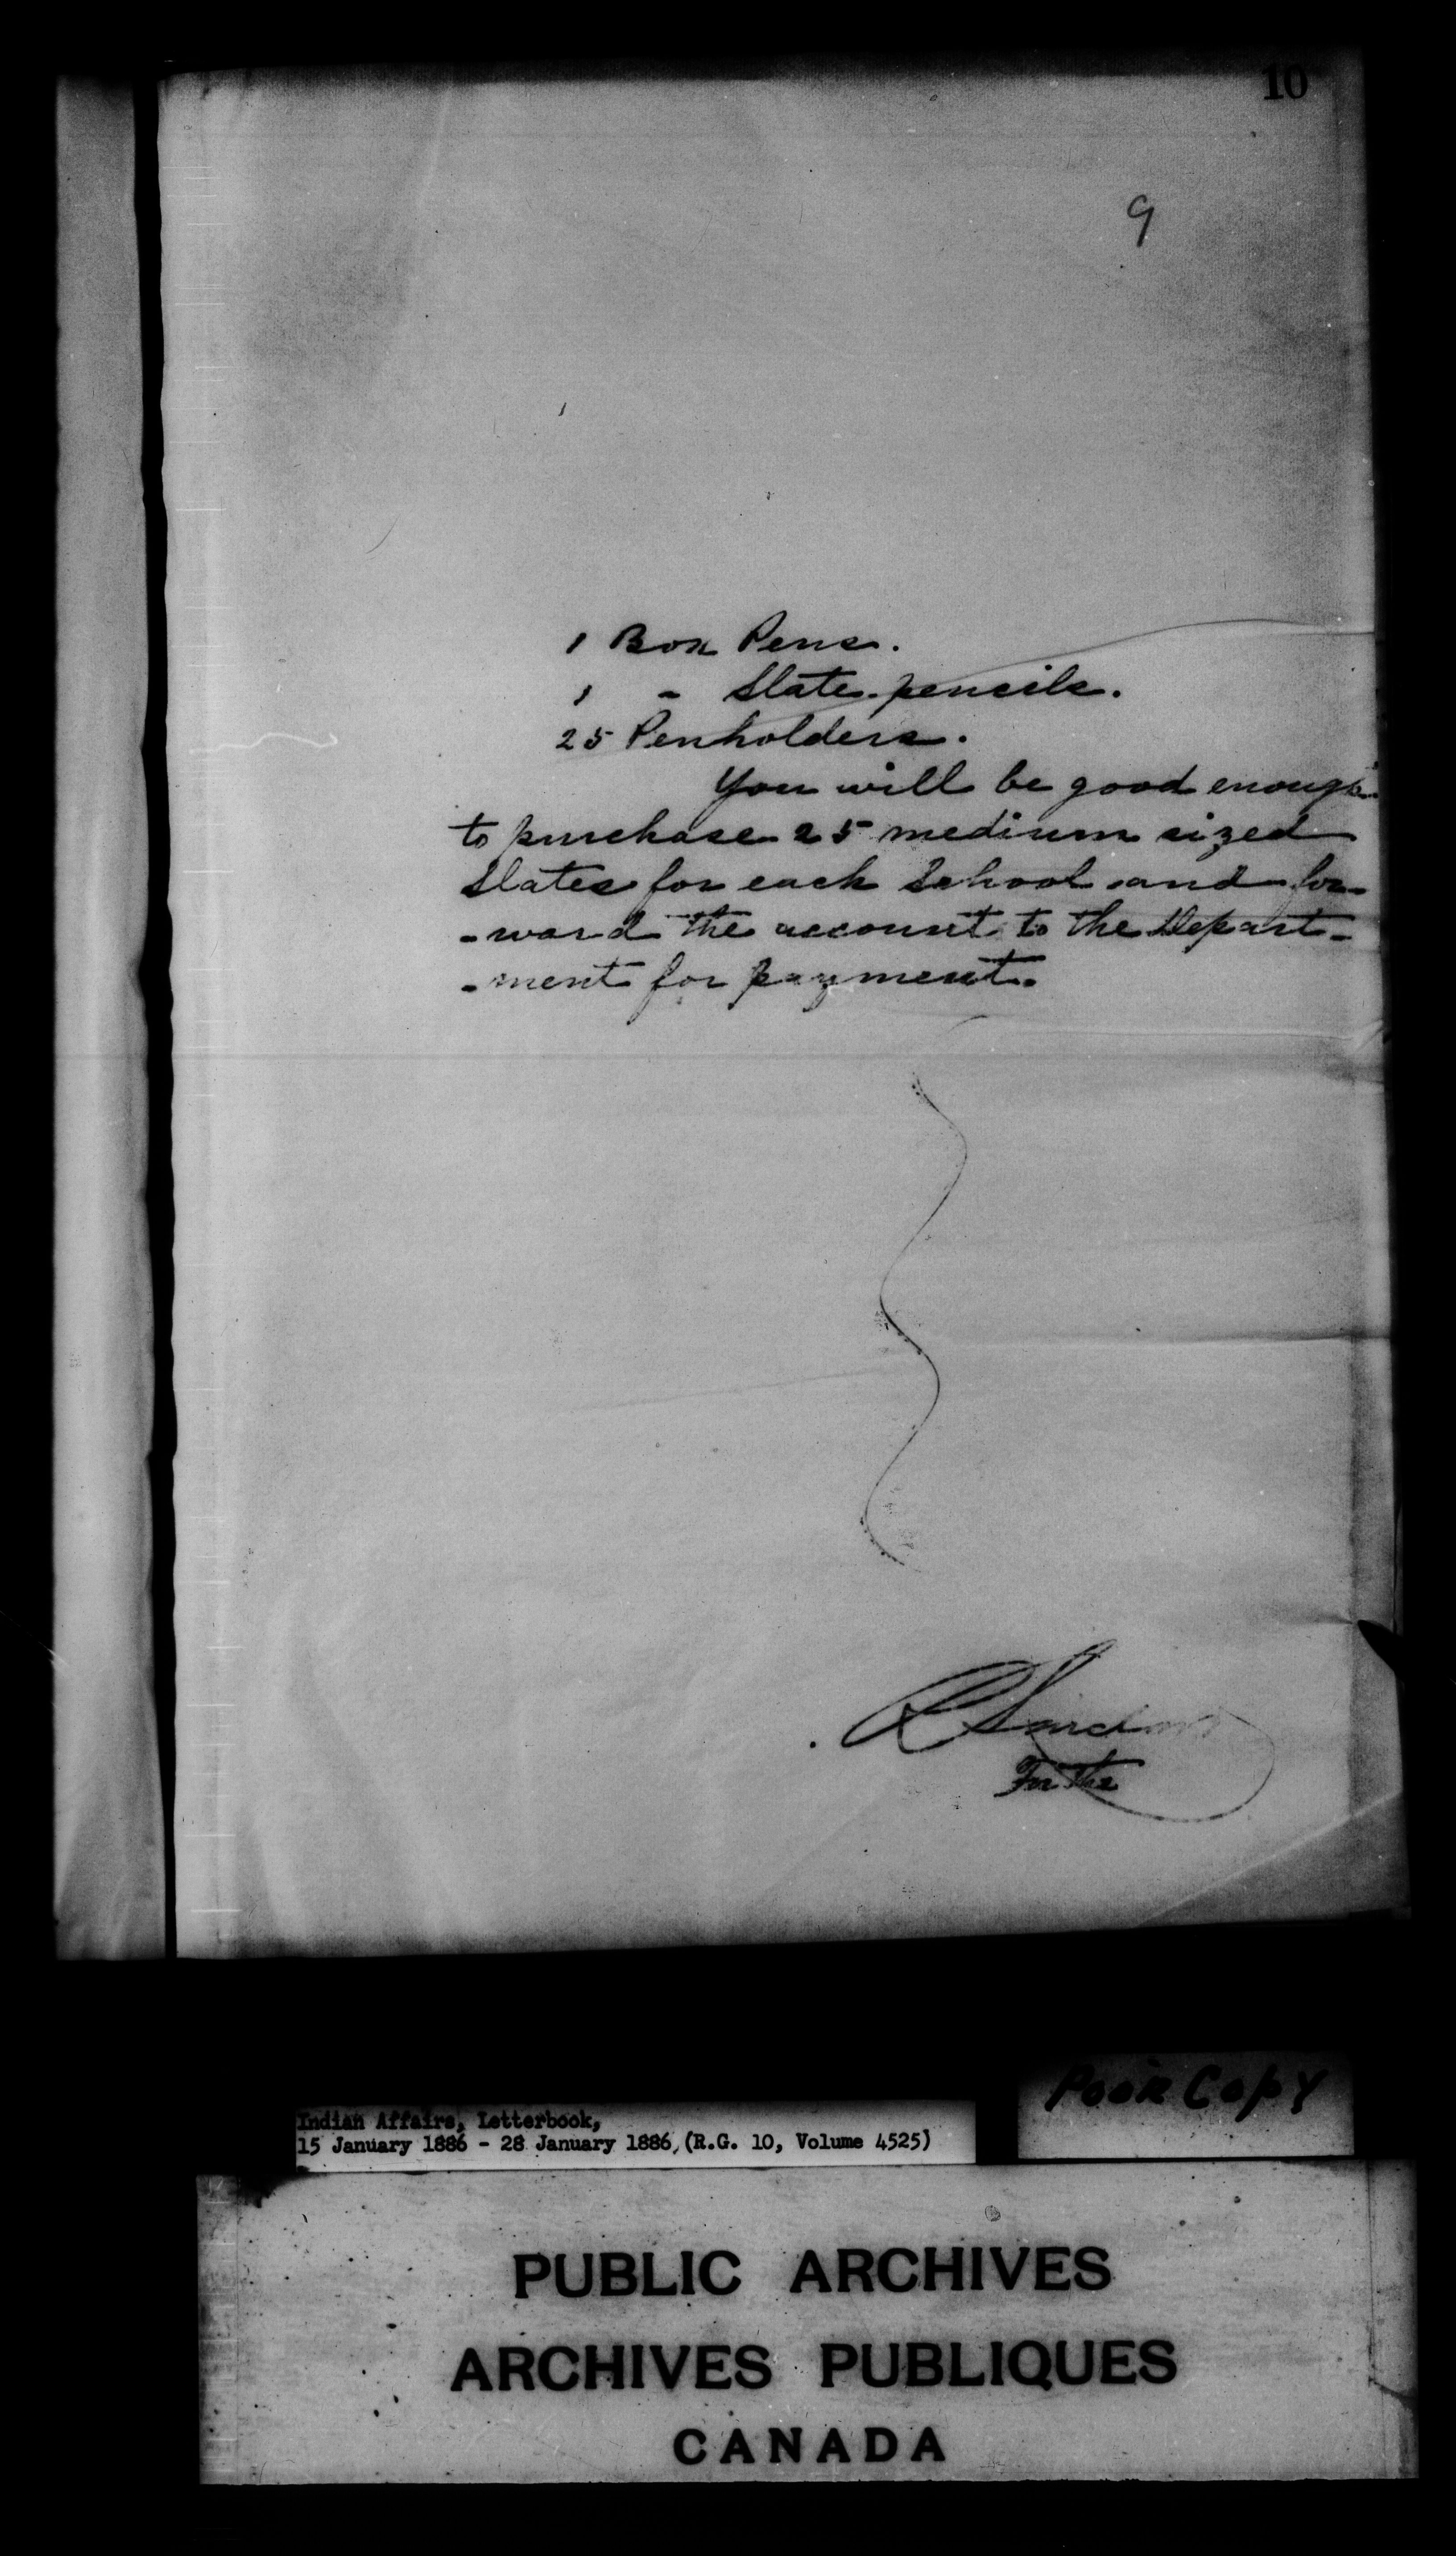 10
9
1 Box Pens.
1 " Slate pencils.
25 Penholders.
You will be good enough
to purchase 25 medium sized
Slates for each School and for-
-ward the account to the Depart-
-ment for payment.
R Sinclair
For the
Poor Copy
Indian Affairs, Letterbook,
15 January 1886 - 28 January 1886, (R.G. 10, Volume 4525)
PUBLIC ARCHIVES
ARCHIVES PUBLIQUES
CANADA